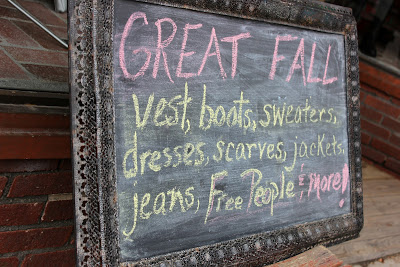 GREAT FALL
Vest, boots, sweaters,
dresses, scarves, jackets,
jeans, Free People & more!